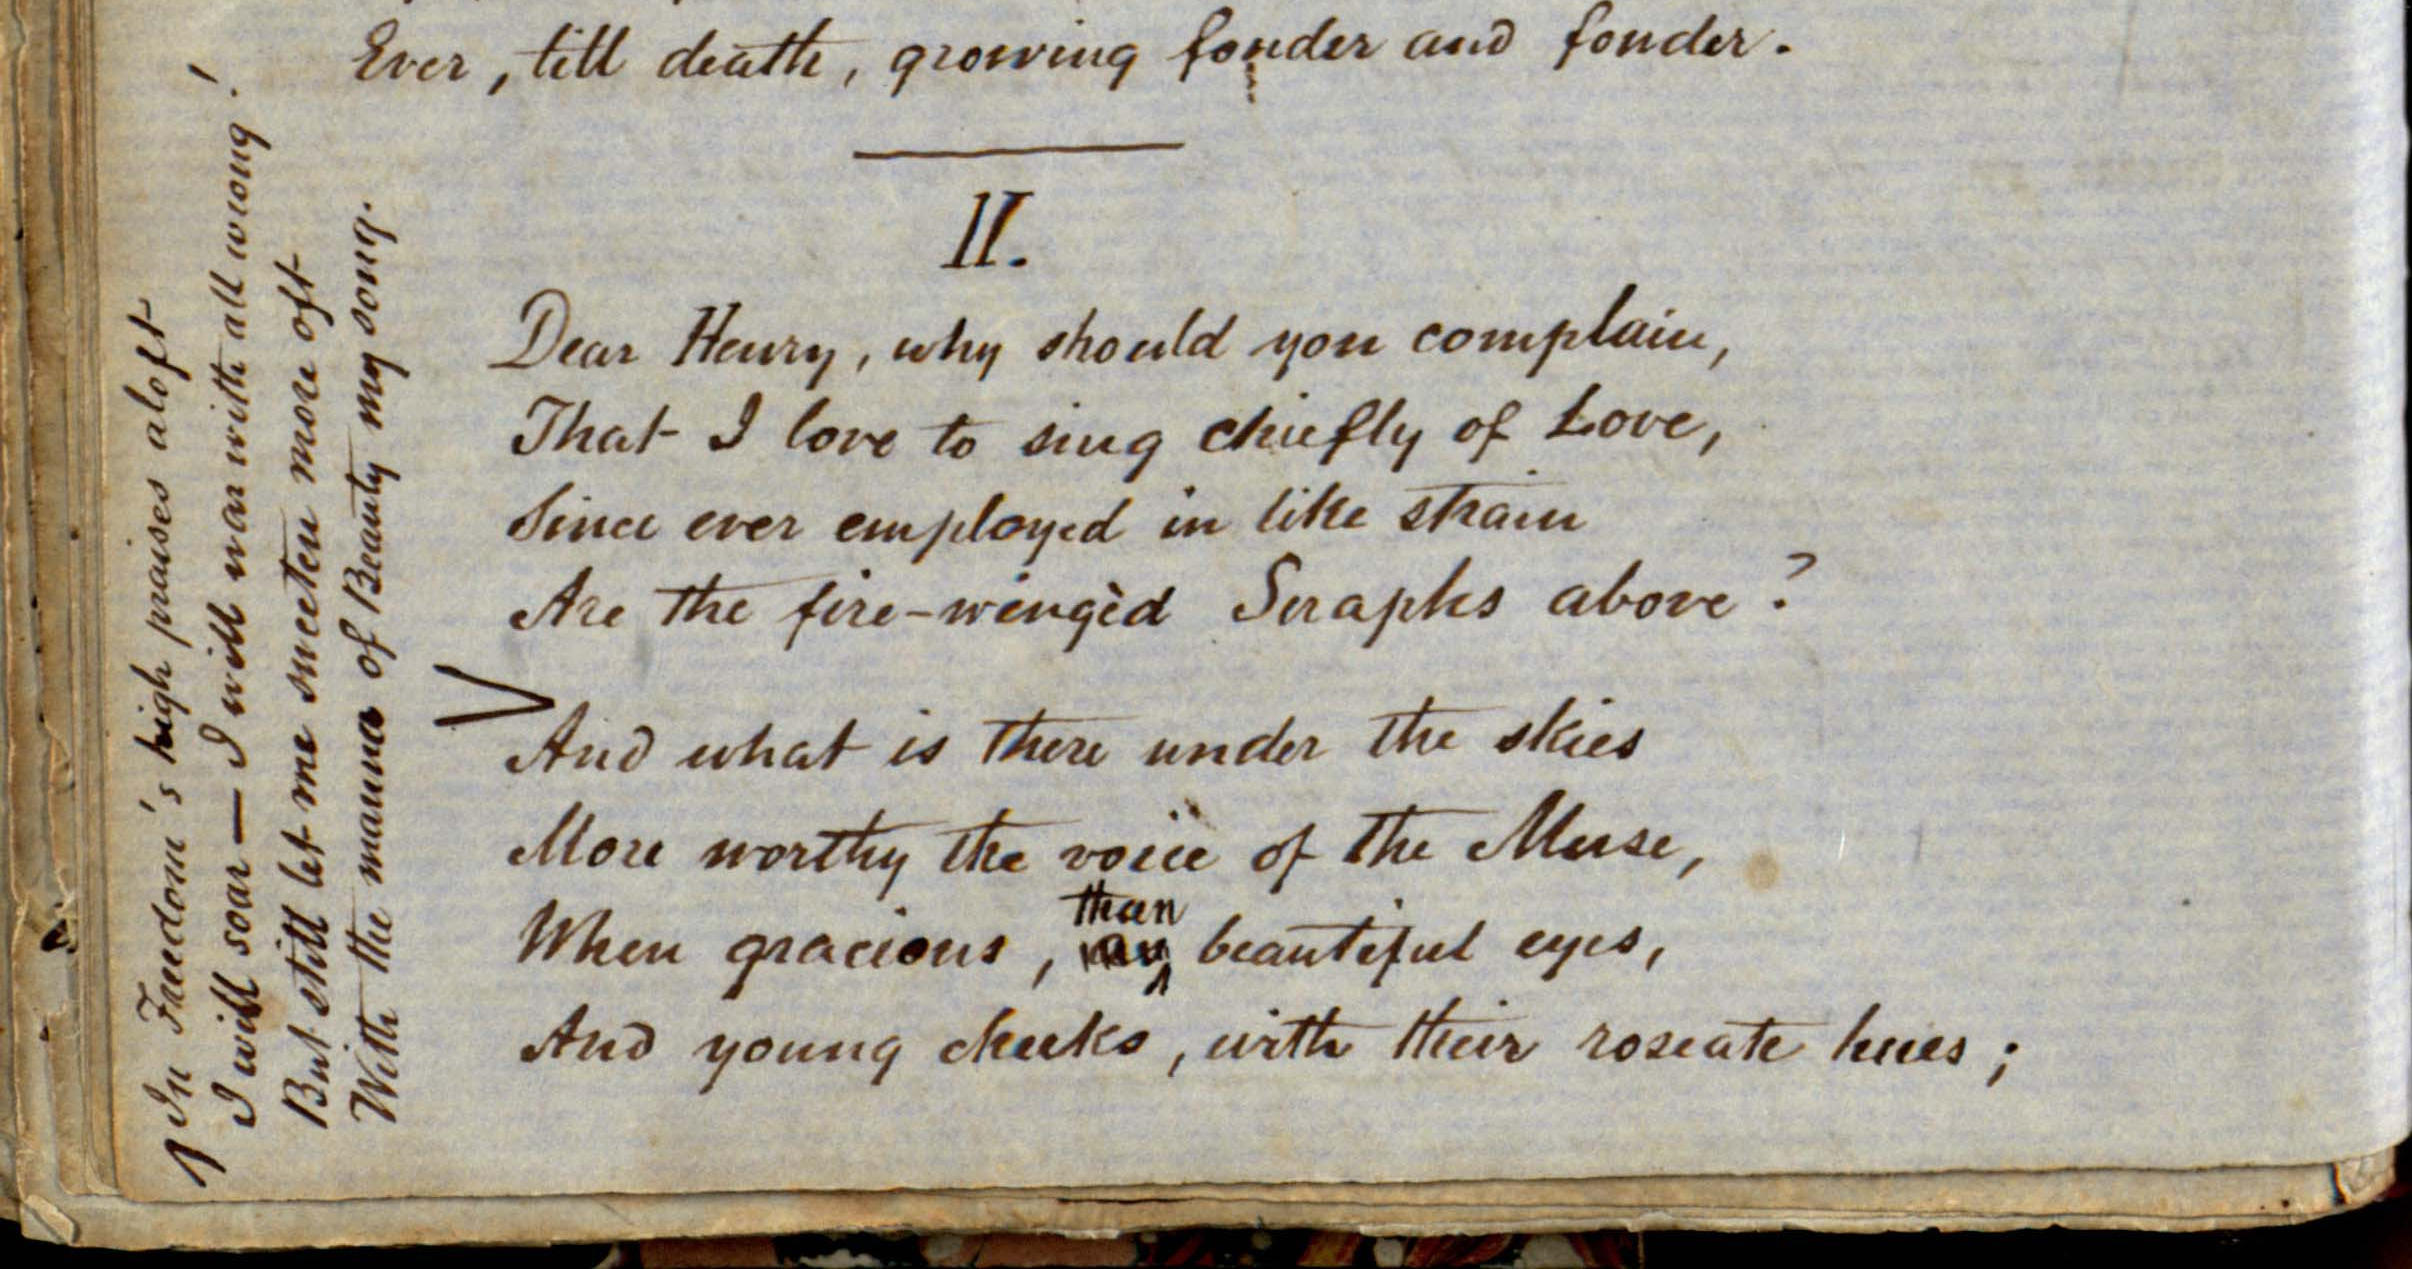 Ever, till death, growing fonder and fonder.
II.
Dear Henry, why should you complain,
That I love to sing chiefly of Love,
Since ever employed in like strain
Are the fire-wingèd Seraphs above?
And what is there under the skies
More worthy the voice of the Muse,
than
When gracious, beautiful eyes,
And young cheeks, with their roseate hues;
In Freedom's high praises aloft
I will soar — I will war with all wrong!
But still let me sweeten more oft
With the manna of Beauty my song.